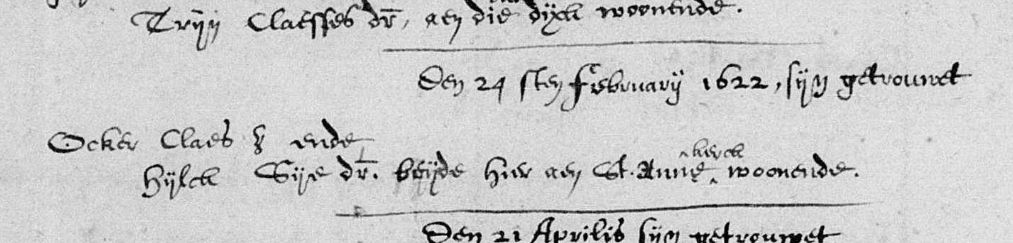 Trijn Claesses dr, aen die dijck woonende.
Den 24 sten February 1622, sijn getrouwet
Ocker Claes z ende
kerck
Hijlck Sije dr. beijde hier aen St. Anne woonende.
Den 21 Aprilis sijn getrouwet